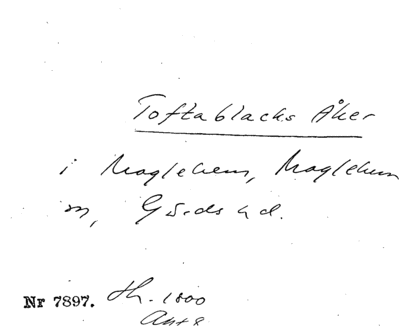 Toftablacks Åker
i Maglehem, Maglehem
sn, Gärds hd.
Nr 7897. th. 1800